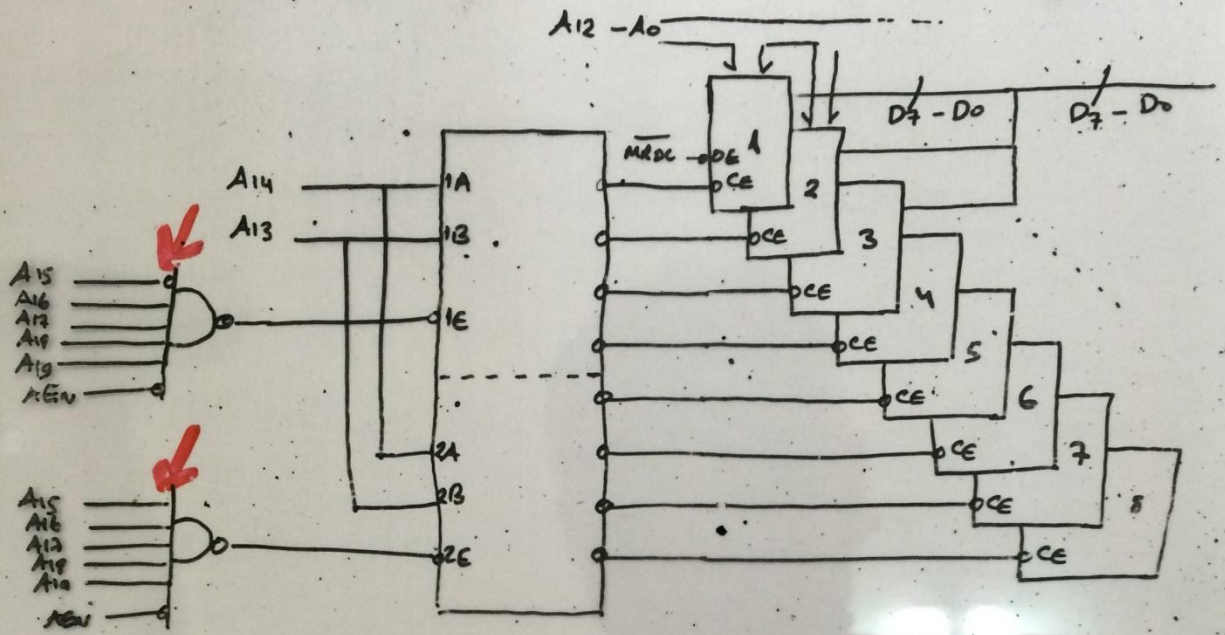 A12 - A0
D7 - D0
D7 - D0
MRDC
OE
1
CE
A14
1A
2
A13
1B
CE
3
A15
A16
A17
A18
A19
AEN
1E
CE
4
CE
5
CE
6
2A
CE
7
A15
A16
A17
A18
A19
AEN
2B
CE
8
2E
CE